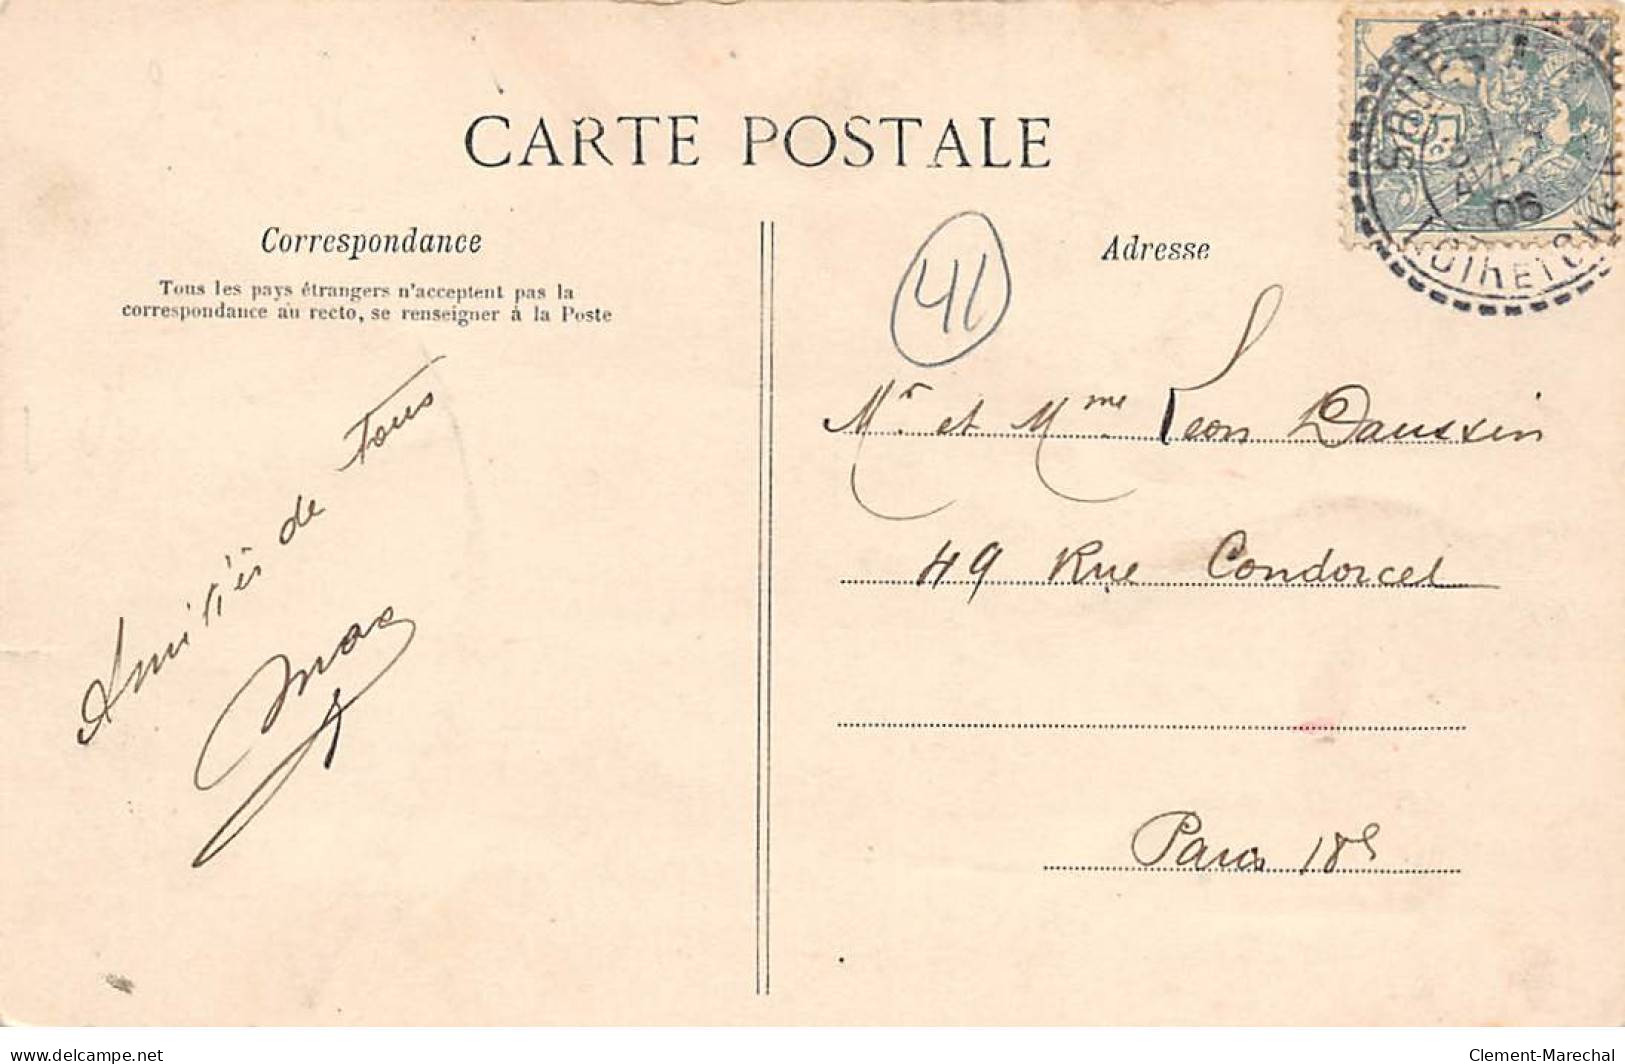 CARTE POSTALE
Correspondance
Tous les pays étrangers n'acceptent pas la
correspondance au recto, se renseigner à la Poste
Amitiés de Tous
Adresse
41
06
LOIR ET CHER
Mr. et Mme. Leon Daussin
49 Rue Condorcet
Paris 18e
delcampe.net
Clement-Marechal